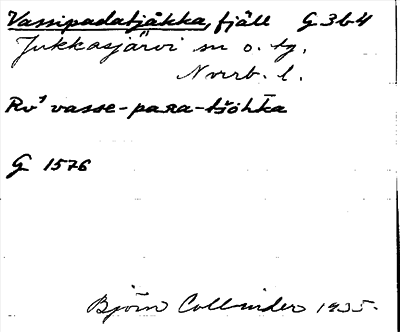 Vassipadatjåkka, fjäll G 3b4
Jukkasjärvi sn o. tg.
Nrrb. l.
Rv¹ vasse-paʀa-tšöhka
G 1576
Björn Collinder 1935.